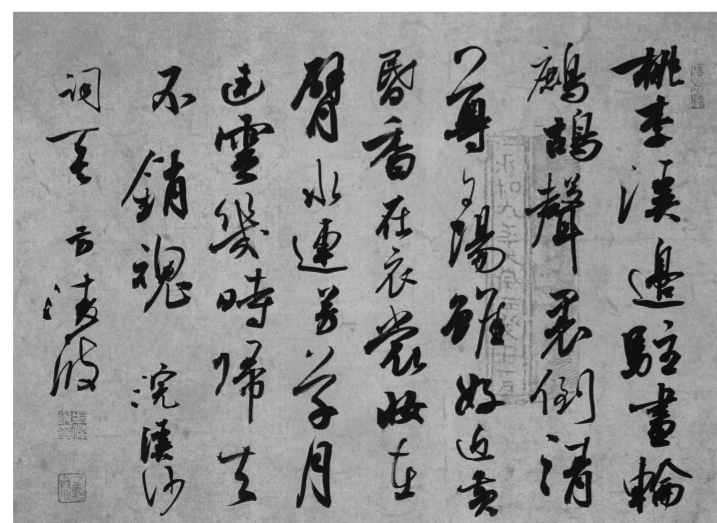 桃李溪邊駐畫輪
鷓鴣聲裏倒清
尊夕陽雖好近黃
昏香在衣裳妝在
臂水連芳草月
連雲幾時歸去
不銷魂 浣溪沙
詞